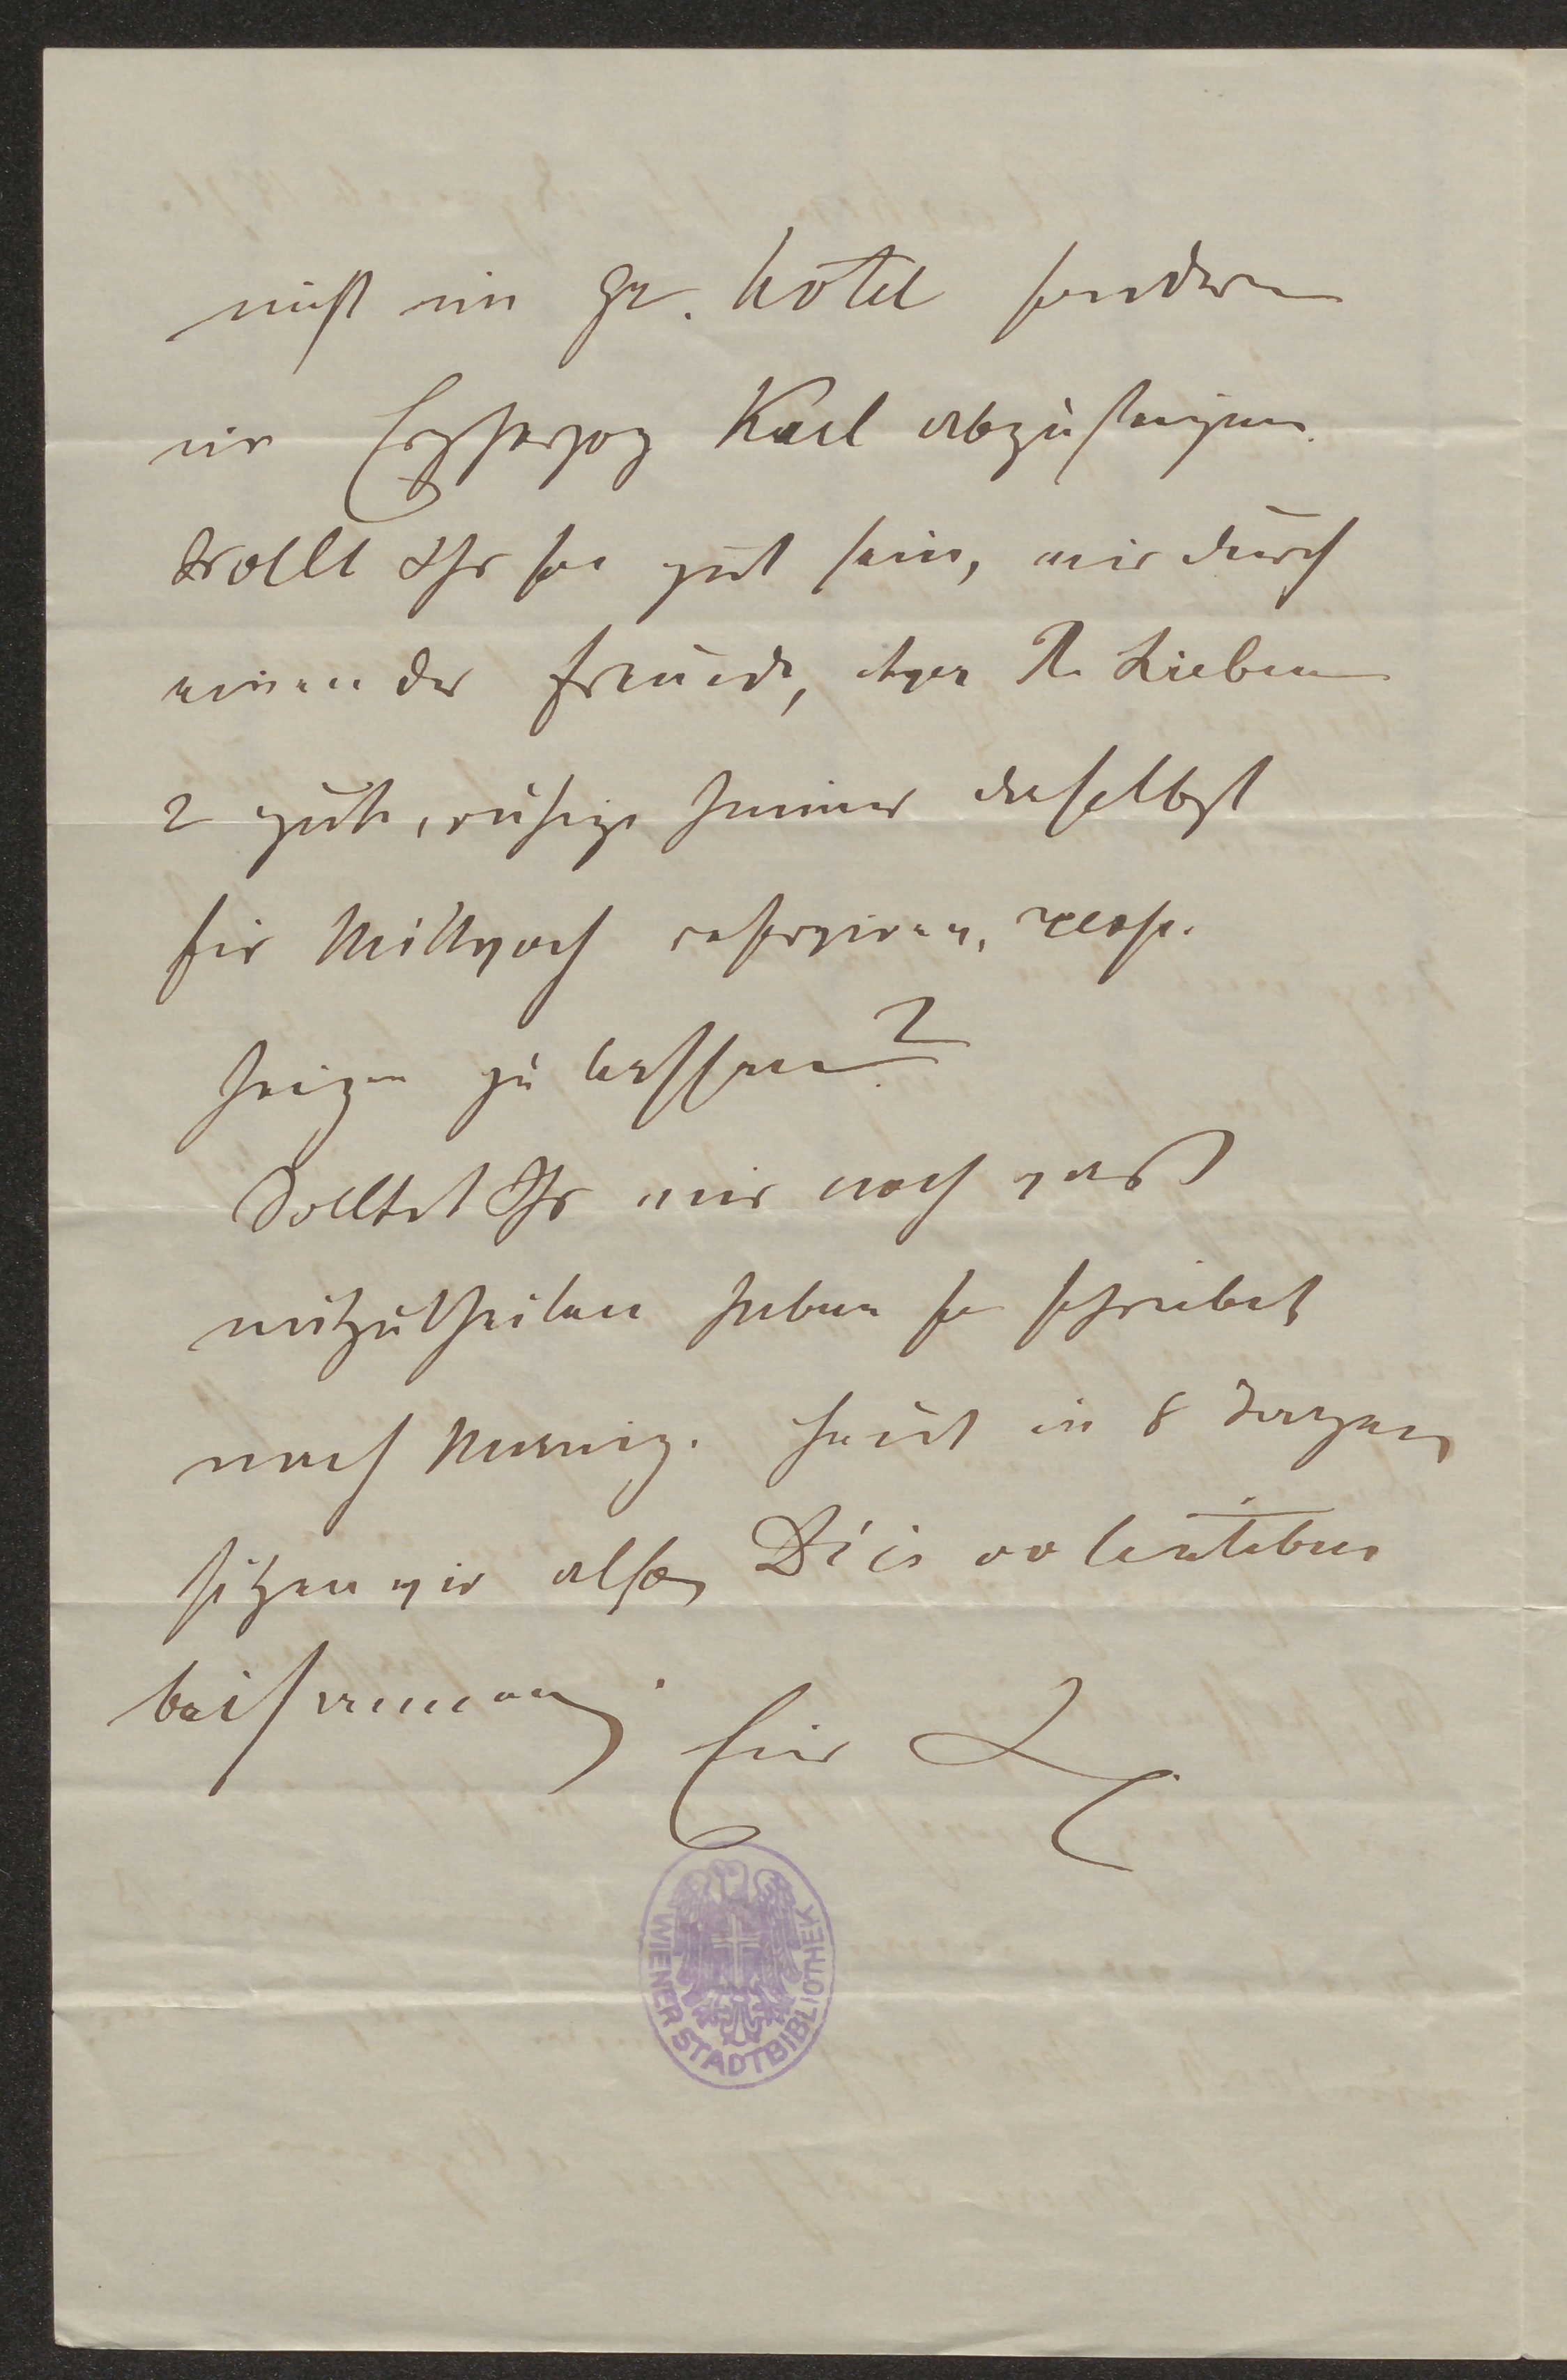 nicht im Gr. Hôtel sondern
im Erzherzog Karl abzusteigen.
Wollt Ihr so gut sein, mir durch
einen der Freunde, etwa R. Lieben
2 gute, ruhige Zimmer daselbst
für Mittwoch reserviren, resp.
heizen zu lassen?
Solltet Ihr mir noch was
mitzutheilen haben so schreibet
nach Meining. Heut in 8 Tagen
sitzen wir also Diis volentibus
beisammen.
Euer L
WIENER STADTBIBLIOTHEK